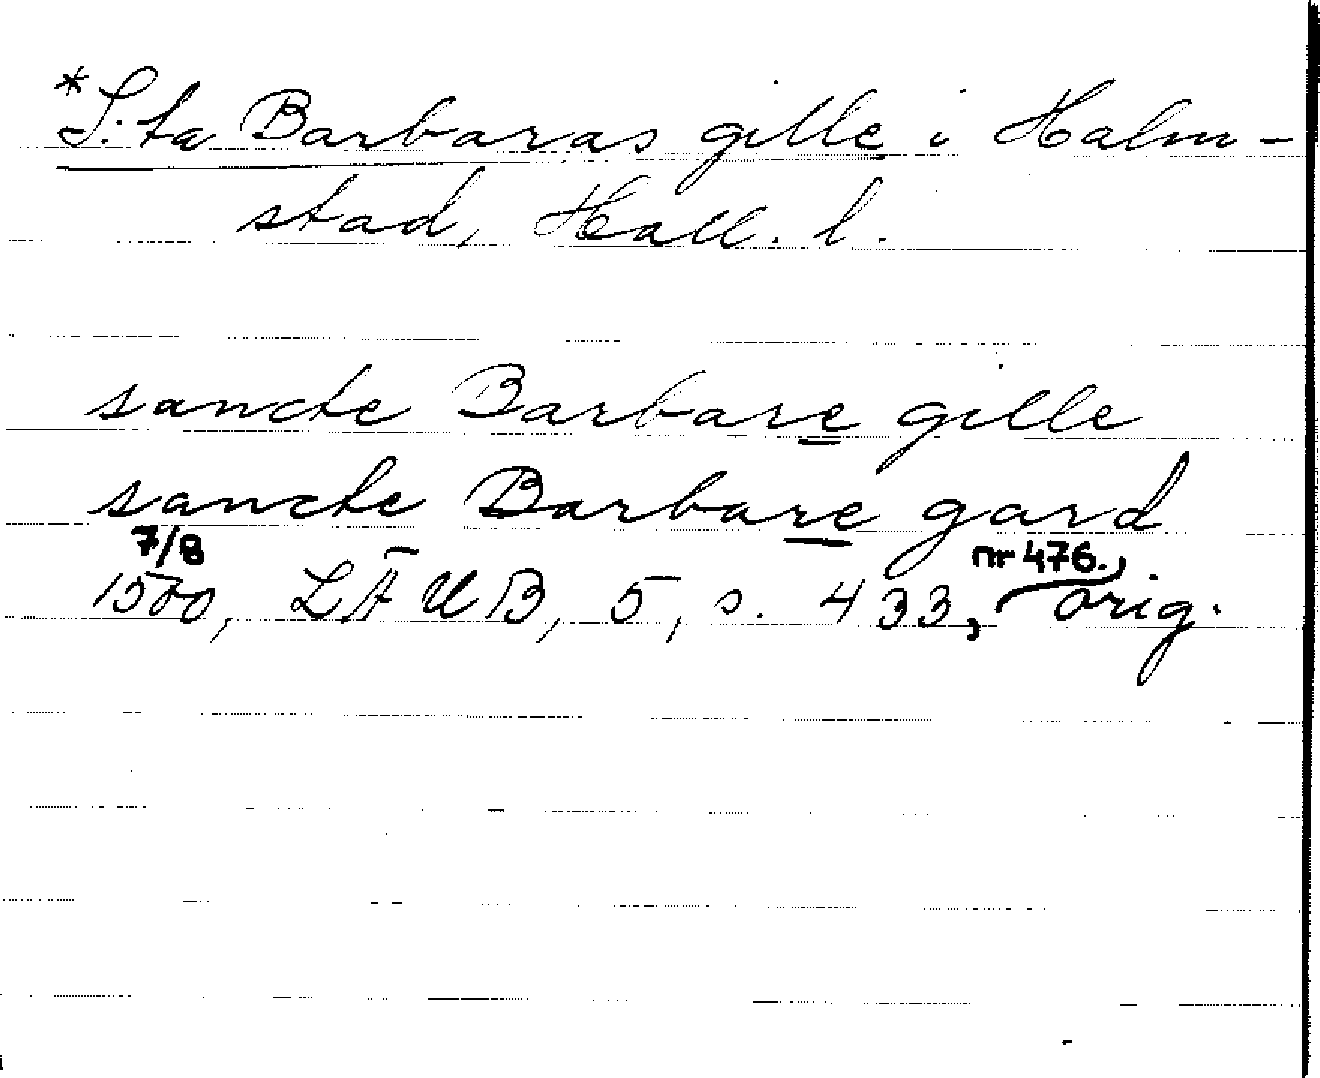 *S:ta Barbaras gille i Halm-
stad, Hall. l.
sancte Barbare gille
sancte Barbare gard
7/8 1500, LÄUB, 5, s. 433, nr 476., orig.